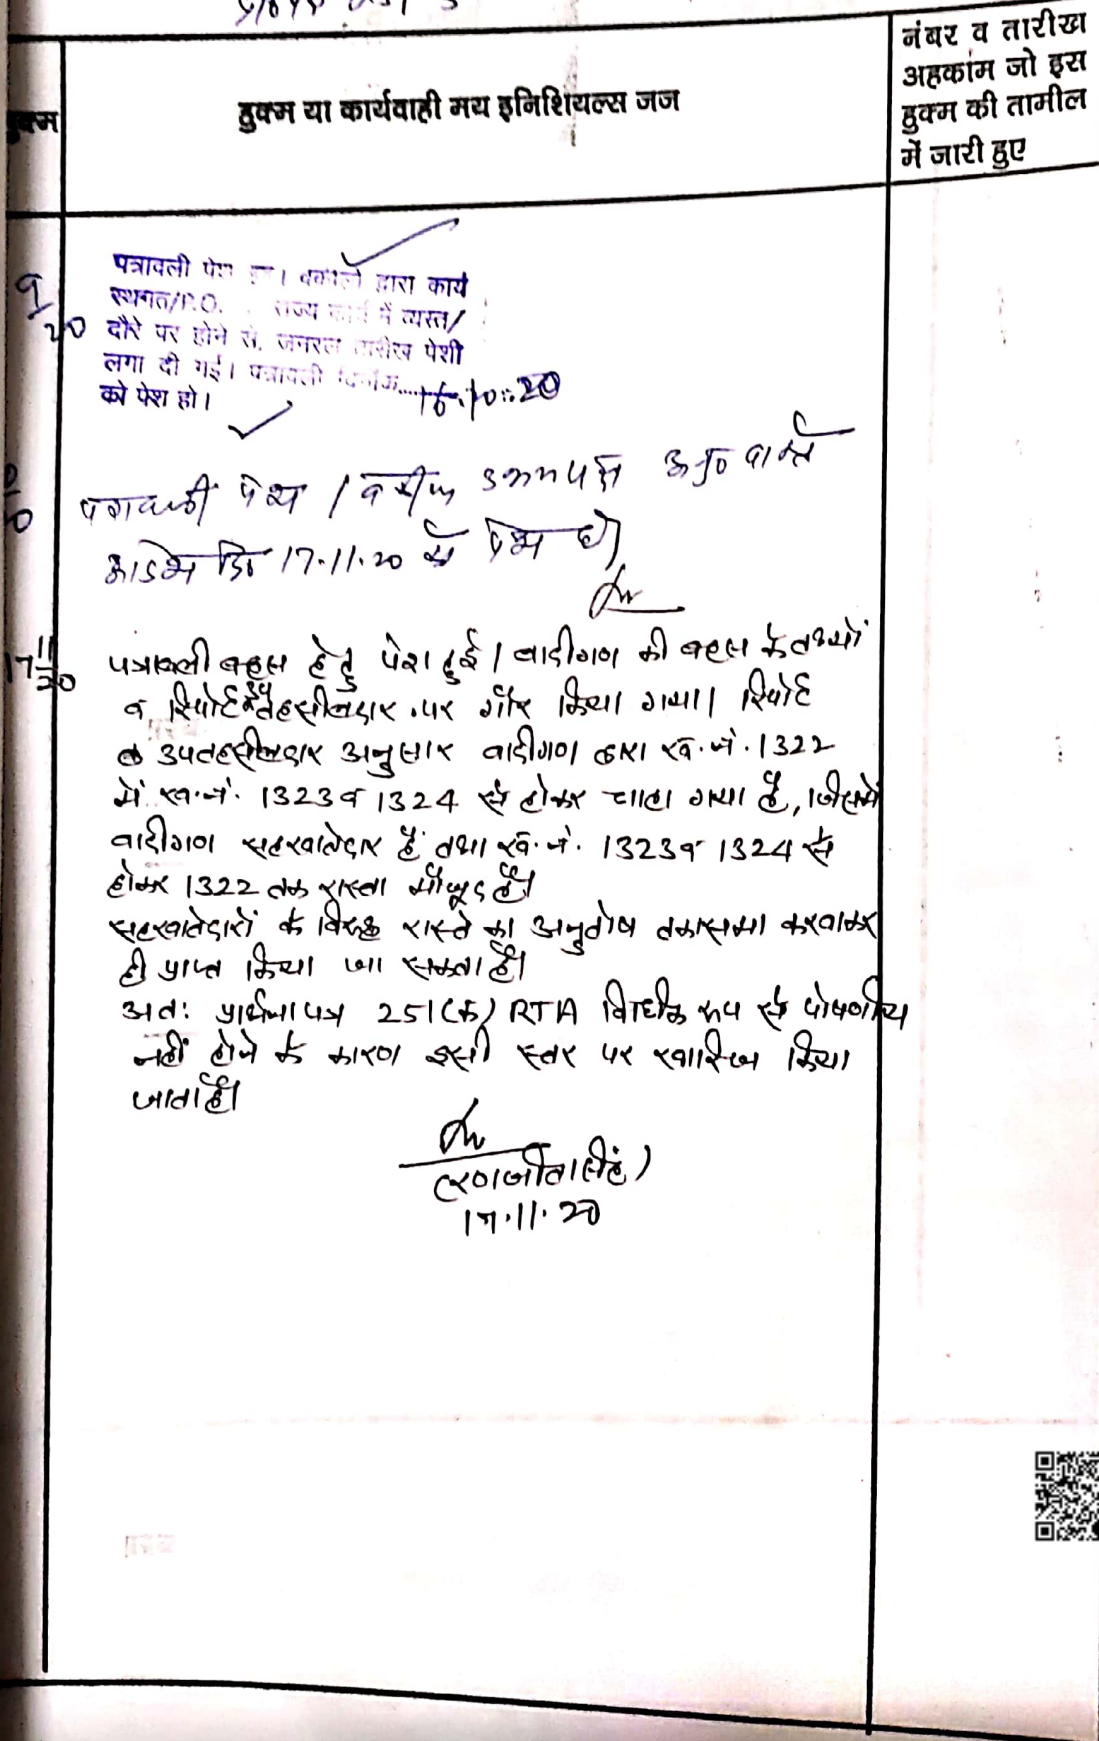 हुक्म
हुक्म या कार्यवाही मय इनिशियल्स जज
नंबर व तारीख
अहकांम जो इस
हुक्म की तामील
में जारी हुए
9/20
पत्रावली पेश । वकीलों द्वारा कार्य
स्थगत/P.O. राज्य कार्य में व्यस्त/
दौरे पर होने से. जनरल तारीख पेशी
लगा दी गई। पत्रावली दिनांक.....16.10.20
को पेश हो।
पत्रावली पेश । वकील उभयपक्ष वास्ते
आदेश दि० 17.11.20 को पेश हो
17 11/20
पत्रावली बहस हेतु पेश हुई। वादीगण की बहस के तथ्यों
व रिपोर्ट उप तहसीलदार पर गौर किया गया। रिपोर्ट
उपतहसीलदार अनुसार वादीगण द्वारा ख.नं. 1322
में ख.नं. 1323 व 1324 से होकर चाहा गया है, जिसमें
वादीगण सहखातेदार हैं तथा ख.नं. 1323 व 1324 से
होकर 1322 तक रास्ता मौजूद है।
सहखातेदारों के विरूद्ध रास्ते का अनुतोष तकासमा करवाकर
ही प्राप्त किया जा सकता है।
अतः प्रार्थना पत्र 251(क) RTA विधिक रूप से पोषणीय
नहीं होने के कारण इसी स्तर पर खारिज किया
जाता है।
(रणजीत सिंह)
17.11.20